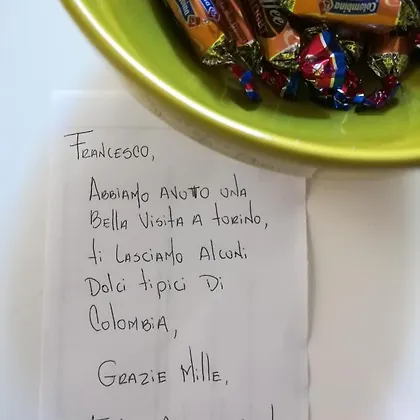 Colombina
Coffee
Colombina
Francesco,
Abbiamo avuto una
Bella Visita a torino,
ti lasciamo alcuni
Dolci tipici Di
Colombia,
Grazie Mille,